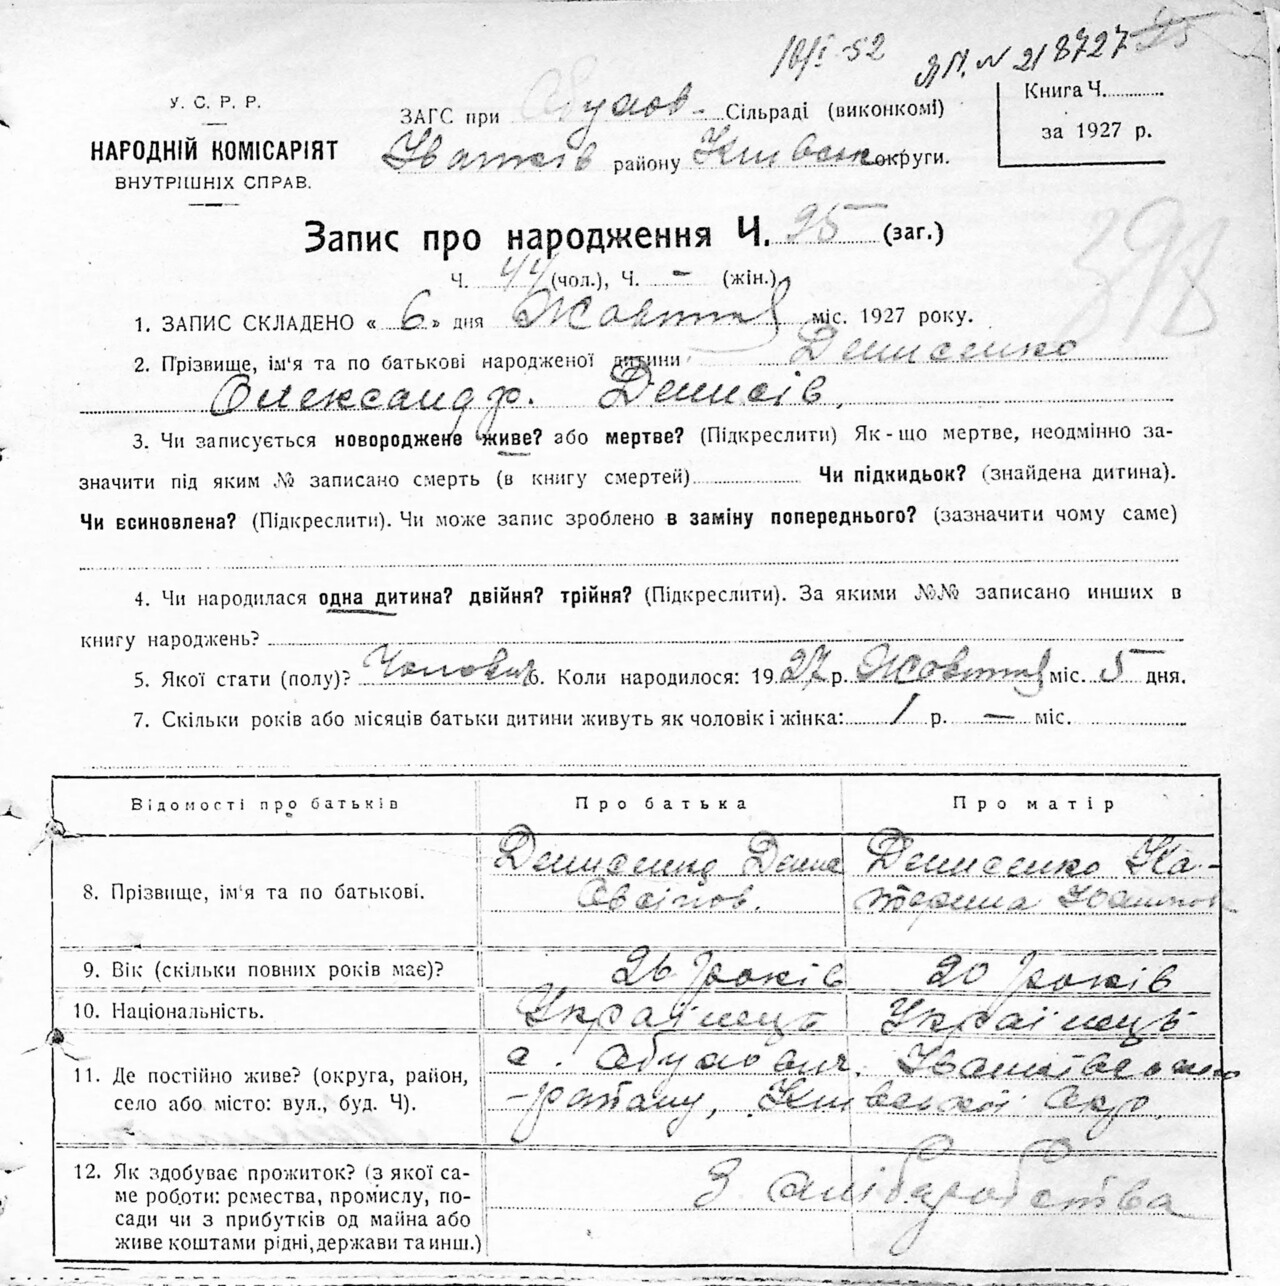 10/I-52
№ 218727
У. С. Р. Р.
НАРОДНІЙ КОМІСАРІЯТ
ВНУТРІШНІХ СПРАВ.
ЗАГС при Обухов. Сільраді (виконкомі)
району Київськ округи.
Книга Ч.
за 1927 р.
398
Запис про народження Ч. 95 (заг.)
Ч. 44 (чол.), Ч. – (жін.)
1. ЗАПИС СКЛАДЕНО « 6 » дня Жовтня міс. 1927 року.
2. Прізвище, ім‘я та по батькові народженої дитини Денисенко
Олександр. Денисів.
3. Чи записується новороджене живе? або мертве? (Підкреслити) Як-що мертве, неодмінно за-
значити під яким № записано смерть (в книгу смертей) Чи підкидьок? (знайдена дитина).
Чи всиновлена? (Підкреслити). Чи може запис зроблено в заміну попереднього? (зазначити чому саме)
4. Чи народилася одна дитина? двійня? трійня? (Підкреслити). За якими №№ записано инших в
книгу народжень?
5. Якої стати (полу)? Чоловіч. 6. Коли народилося: 1927 р. Жовтня міс. 5 дня.
7. Скільки років або місяців батьки дитини живуть як чоловік і жінка: 1 р. — міс.
Відомості про батьків Про батька Про матір
8. Прізвище, ім‘я та по батькові. Денисенко Денис Денисенко Ка-
терина
9. Вік (скільки повних років має)? 26 років 20 років
10. Національність. Українець Українець
11. Де постійно живе? (округа, район,
село або місто: вул., буд. Ч).
району, Київської Окр.
12. Як здобуває прожиток? (з якої са-
ме роботи: ремества, промислу, по-
сади чи з прибутків од майна або
живе коштами рідні, держави та инш.)
З хліборобства